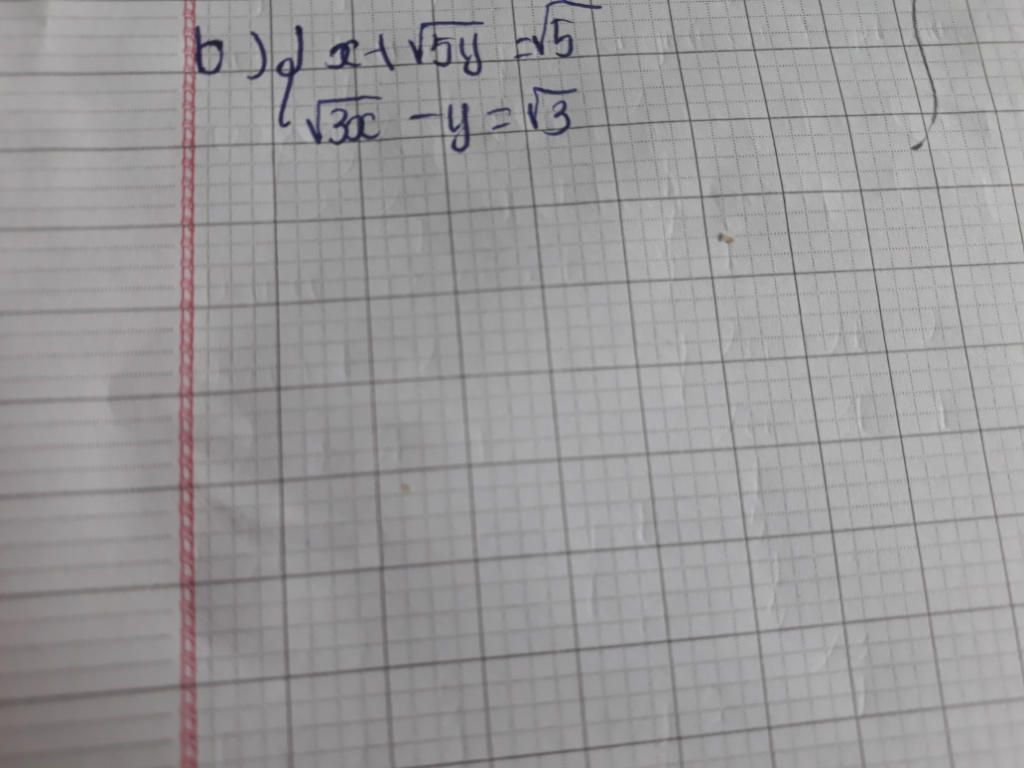 b) { x + √5y = √5
√3x - y = √3